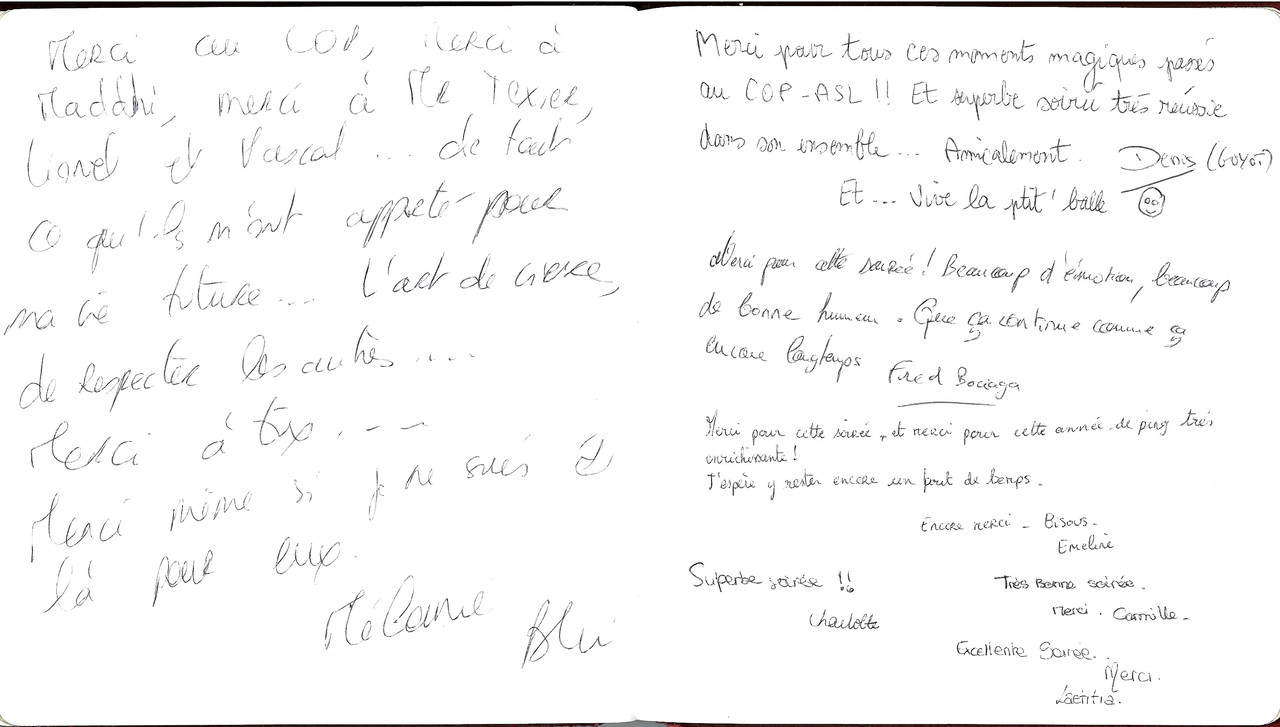 Merci au COP, Merci à
Maddhi, merci à Me Texier,
Lionel et Pascal ... de tout
ce qu'ils m'ont apporté pour
ma vie future ... L'art de vivre,
de respecter les autres ....
Merci à eux . - -
Merci même si je ne suis
là pour eux.
Mélanie
Merci pour tous ces moments magiques passés
au COP-ASL !! Et superbe soirée très réussie
dans son ensemble ... Amicalement. Denis (GUYOT)
Et ... vive la ptit' balle
Merci pour cette soirée ! Beaucoup d'émotion, beaucoup
de bonne humeur. Que ça continue comme ça
encore longtemps Fred Bociaga
Merci pour cette soirée, et merci pour cette année de ping très
enrichissante !
J'espère y rester encore un bout de temps.
Encore merci - Bisous.
Emeline
Superbe soirée !!
Charlotte
Très Bonne soirée.
Merci. Camille-
Excellente Soirée.
Merci.
Laetitia.